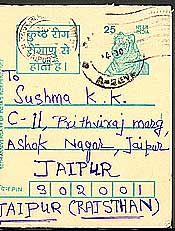 कुष्ठ रोग
रोगाणु से
होता है।
25
To
Sushma K.K.
C-11, Prithviraj marg,
Ashok Nagar, Jaipur
JAIPUR
पिन PIN
302001
JAIPUR (RAJSTHAN)